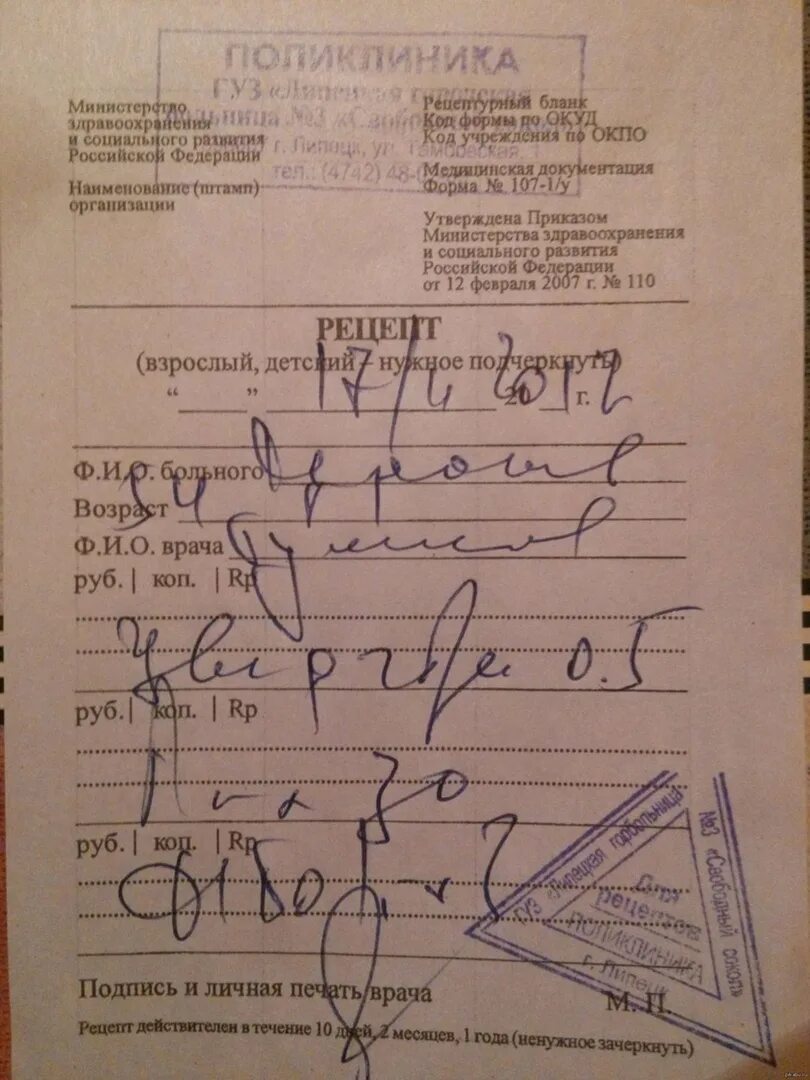 ПОЛИКЛИНИКА
ГУЗ «Липецкая городская
больница №3 «Свободный
г. Липецк, ул.
тел.: (4742) 48-
Министерство
здравоохранения
и социального развития
Российской Федерации
Наименование (штамп)
организации
Рецептурный бланк
Код формы по ОКУД
Код учреждения по ОКПО
Медицинская документация
Форма № 107-1/у
Утверждена Приказом
Министерства здравоохранения
и социального развития
Российской Федерации
от 12 февраля 2007 г. № 110
РЕЦЕПТ
(взрослый, детский – нужное подчеркнуть)
“ ” 17/ 2012 20 г.
Ф.И.О. больного
Возраст 54
Ф.И.О. врача
руб. | коп. | Rp
0.5
руб. | коп. | Rp
30
руб. | коп. | Rp
ГУЗ «Липецкая горбольница
№3 «Свободный сокол»
Для
рецептов
ПОЛИКЛИНИКА
г. Липецк
Подпись и личная печать врача М. П.
Рецепт действителен в течение 10 дней, 2 месяцев, 1 года (ненужное зачеркнуть)